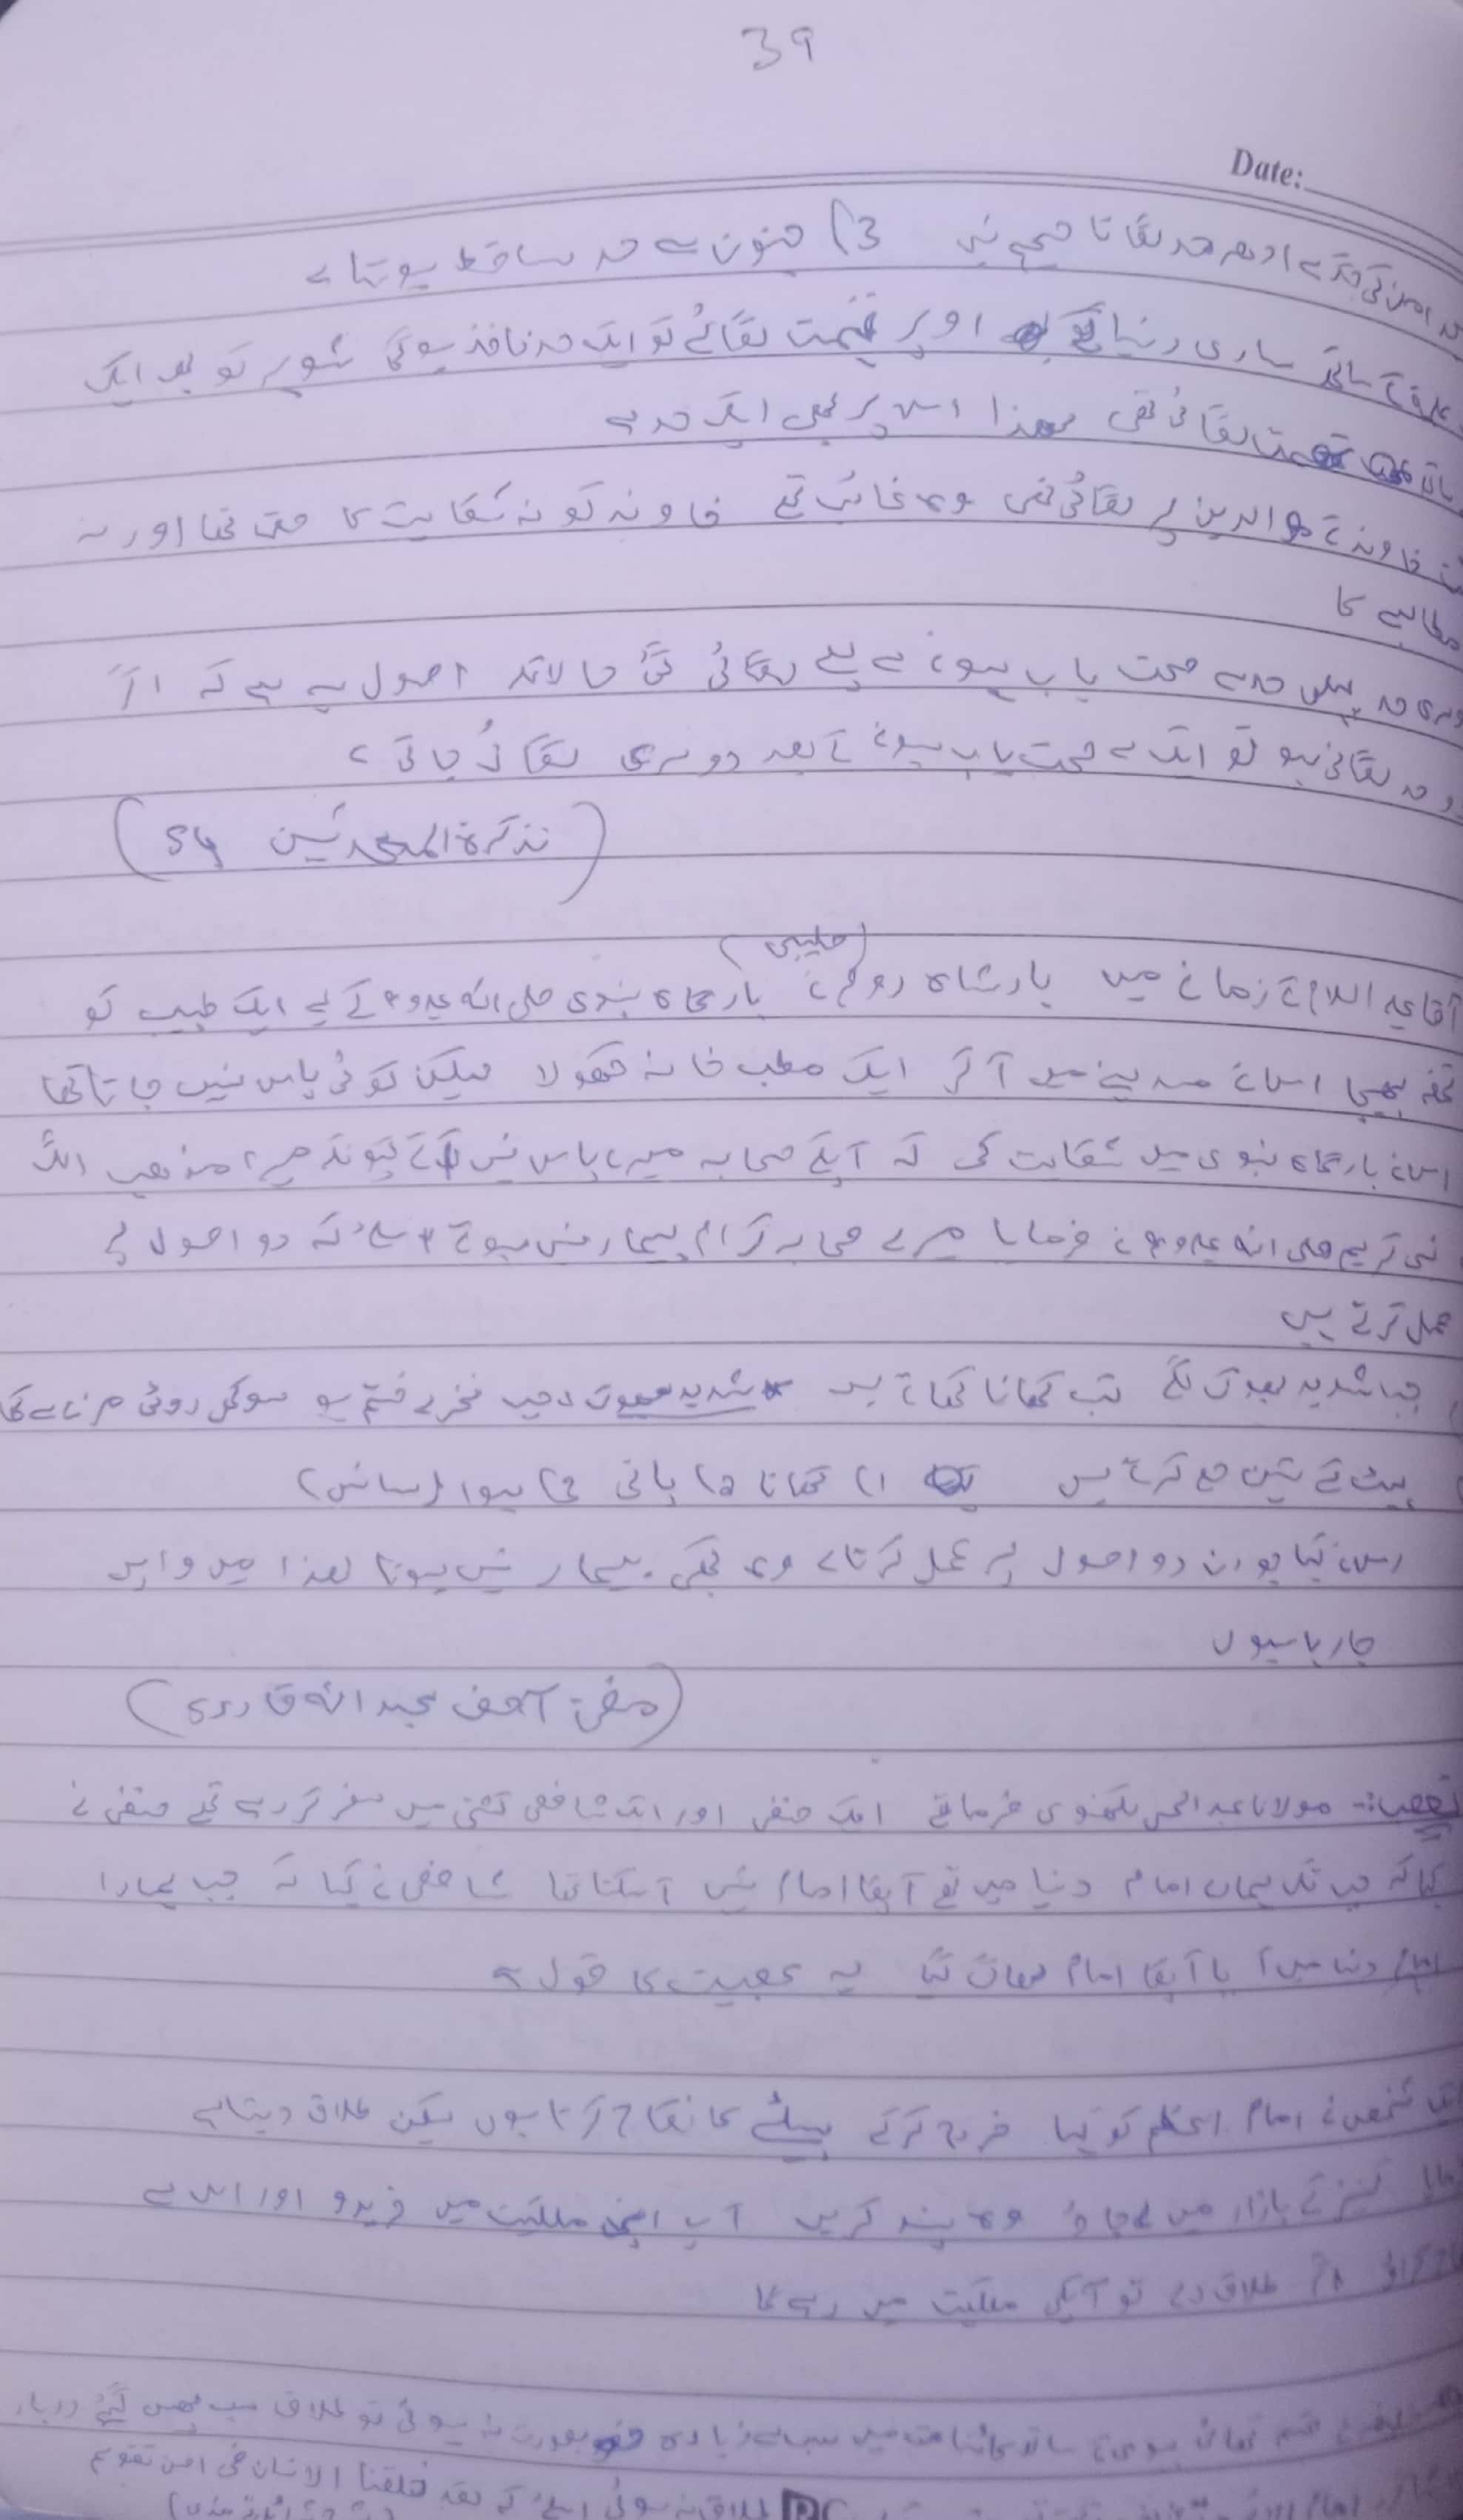 39
Date:
امن کی جگہ ہے ادھر حد لگانا صحیح نہیں 3) جنون سے حد ساقط ہوتا ہے
ساری دنیا کے اوپر تہمت لگائے تو ایک حد نافذ ہوگی شوہر کو بھی ایک
تہمت لگائی تھی لھذا اس پر بھی ایک حد ہے
خاوند کے والدین پے لگائی تھی وہ غائب تھے خاوند کو نہ شکایت کا حق تھا اور نہ
مطالبے کا
حد پہلی حد سے صحت یاب ہونے سے پہلے لگائی گئی حالانکہ اصول یہ ہے کہ اگر
دو حد لگانی ہو تو ایک سے صحت یاب ہونے کے بعد دوسری لگائی جاتی ہے
(تذکرۃ المحدثین 54)
(صلیبی)
آقا علیہ السلام کے زمانے میں بادشاہ روم نے بارگاہ نبوی صلی اللہ علیہ وسلم کے لیے ایک طبیب کو
تحفہ بھیجا اس نے مدینے میں آکر ایک مطب خانہ کھولا لیکن کوئی پاس نہیں جاتا تھا
اس نے بارگاہ نبوی میں شکایت کی کہ آپکے صحابہ میرے پاس نہیں آتے کیونکہ میرے مذھب الگ
نبی کریم صلی اللہ علیہ وسلم نے فرمایا میرے صحابہ کرام بیمار نہیں ہوتے اسلئے کہ دو اصول پے
عمل کرتے ہیں
جب شدید بھوک لگے تب کھانا کھاتے ہیں شدید بھوک وہ جب نخرے ختم ہو سوکھی روٹی مزے سے کھا
پیٹ کے تین حصے کرتے ہیں ۱) کھانا ۲) پانی ۳) ہوا (سانس)
اس نے کہا جو ان دو اصول پر عمل کرتا ہے وہ کبھی بیمار نہیں ہوتا لھذا میں واپس
جا رہا ہوں
(مفتی آصف عبد اللہ قادری)
تعصب:- مولانا عبد الحی لکھنوی فرماتے ایک حنفی اور ایک شافعی کشتی میں سفر کر رہے تھے حنفی نے
کہا کہ جب تک ہمارے امام دنیا میں تھے آپکا امام نہیں آسکتا تھا شافعی نے کہا کہ جب ہمارا
امام دنیا میں آیا آپکا امام بھاگ گیا یہ عصبیت کا قول ہے
ایک شخص نے امام اعظم کو کہا خرچ کرکے بیٹے کا نکاح کرتا ہوں لیکن طلاق دیتا ہے
کنیز کے بازار میں لے جاؤ وہ پسند کریں آپ اپنی ملکیت میں خریدو اور اس سے
طلاق دے تو آپکی ملکیت میں رہے گا
سب سے زیادہ خوبصورت نہ ہوئی تو طلاق
خلقنا الانسان فی احسن تقویم